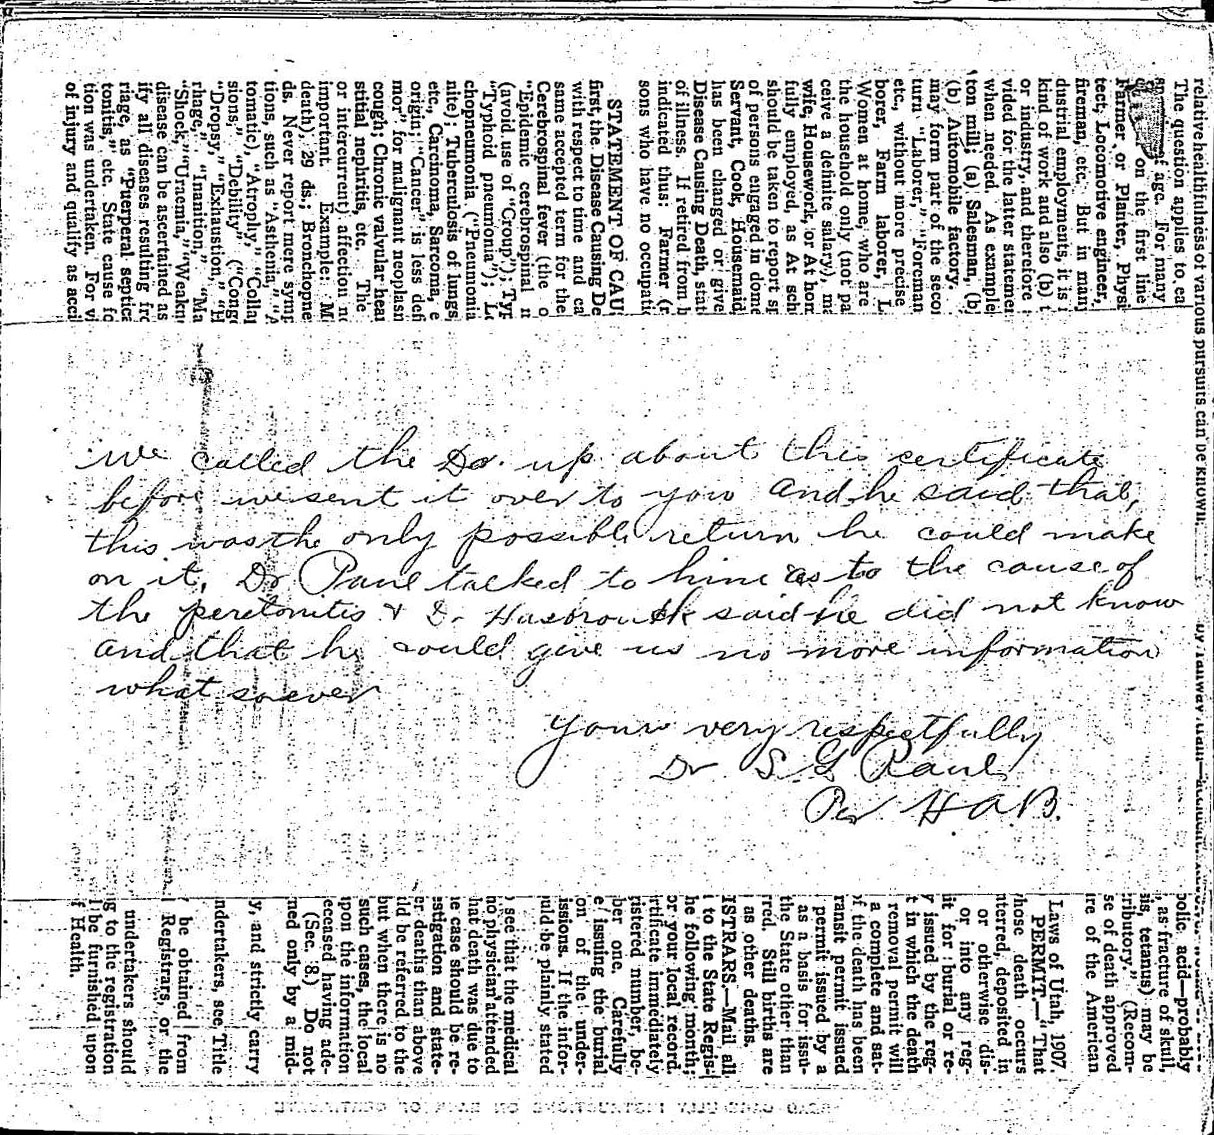 relative healthfulness of various pursuits can be known.
The question applies to ea
of age. For many
on the first line
Farmer or Planter, Physi
tect, Locomotive engineer,
fireman, etc. But in many
dustrial employments, it is
kind of work and also (b) t
or industry, and therefore
vided for the latter statemen
when needed. As example
ton mill; (a) Salesman, (b
(b) Automobile factory.
may form part of the secon
turn "Laborer," "Foreman
etc., without more precise
borer, Farm laborer, L
Women at home, who are
the household only (not pa
ceive a definite salary), ma
wife, Housework, or At hom
fully employed, as At sch
should be taken to report sp
of persons engaged in dome
Servant, Cook, Housemaid
has been changed or give
Disease Causing Death, stat
of illness. If retired from b
indicated thus: Farmer (r
sons who have no occupati
STATEMENT OF CAU
first, the Disease Causing De
with respect to time and ca
same accepted term for the
Cerebrospinal fever (the o
"Epidemic cerebrospinal n
(avoid use of "Croup"); Typ
"Typhoid pneumonia"); Lo
chopneumonia ("Pneumonia
nite); Tuberculosis of lungs
etc., Carcinoma, Sarcoma, e
origin; "Cancer" is less defi
mor" for malignant neoplasm
cough; Chronic valvular hear
stitial nephritis, etc. The
or intercurrent) affection ne
important. Example: M
death), 29 ds.; Bronchopne
ds. Never report mere symp
tions, such as "Asthenia," "A
tomatic), "Atrophy," "Collap
sions," "Debility" ("Cong
"Dropsy," "Exhaustion," "H
rhage," "Inanition," "Ma
"Shock," "Uraemia," "Weakn
disease can be ascertained as
ify all diseases resulting fro
riage, as "Puerperal septice
tonitis," etc. State cause fo
tion was undertaken. For vi
of injury and qualify as acci
We called the Dr. up about this certificate
before we sent it over to you and he said that,
this was the only possible return he could make
on it. Dr Paul talked to him as to the cause of
the peretonitis & Dr Hasbrouck said he did not know
and that he could give us no more information
what soever
Yours very respectfully
Dr S. G Paul
Per H. A. B.
bolic acid—probably
, as fracture of skull,
sis, tetanus) may be
ributory." (Recom-
se of death approved
ure of the American
Laws of Utah, 1907.
PERMIT.—"That
hose death occurs
nterred, deposited in
or otherwise dis-
or into any reg-
it for burial or re-
y issued by the reg-
t in which the death
removal permit will
a complete and sat-
f the death has been
ransit permit issued
permit issued by a
as a basis for issu-
the State other than
rred. Still births are
as other deaths.
ISTRARS.—Mail all
to the State Regis-
he following month;
or your local record.
rtificate immediately
istered number, be-
ber one. Carefully
e issuing the burial
on of the under-
issions. If the infor-
uld be plainly stated
see that the medical
no physician attended
hat death was due to
e case should be re-
estigation and state-
er deaths than above
ld be referred to the
but when there is no
such cases, the local
pon the information
eceased having ade-
(Sec. 8.) Do not
ned only by a mid-
y, and strictly carry
ndertakers, see Title
be obtained from
Registrars, or the
undertakers should
g to the registration
be furnished upon
f Health.